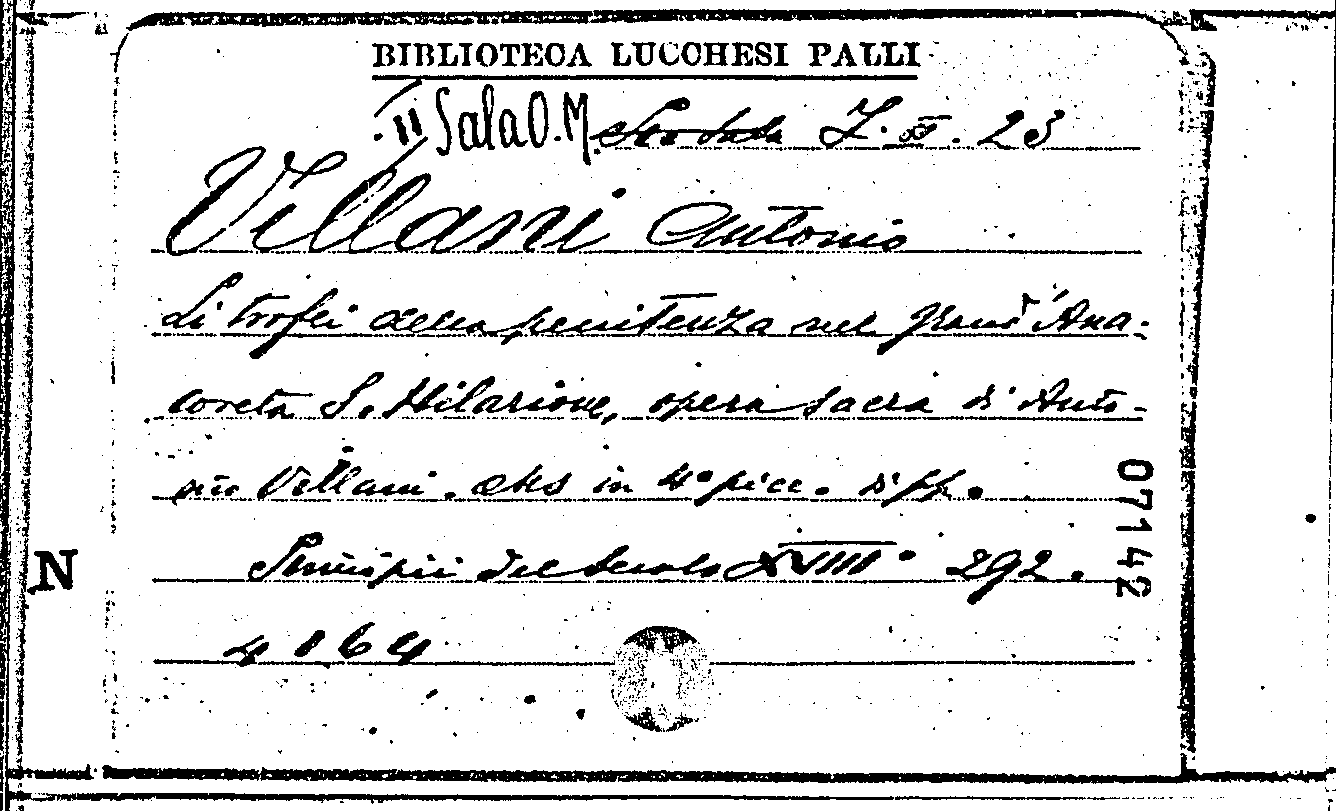 BIBLIOTECA LUCCHESI PALLI
II Sala O. M. Scodala 7. II. 23
Villani Antonio
Li trofei della penitenza nel grand'Ana-
coreta S. Hilarione, opera sacra di Anto-
nio Villani. Ms in 4º picc. di pp.
292. Principii del secolo XVIIIº
4064
07142
N